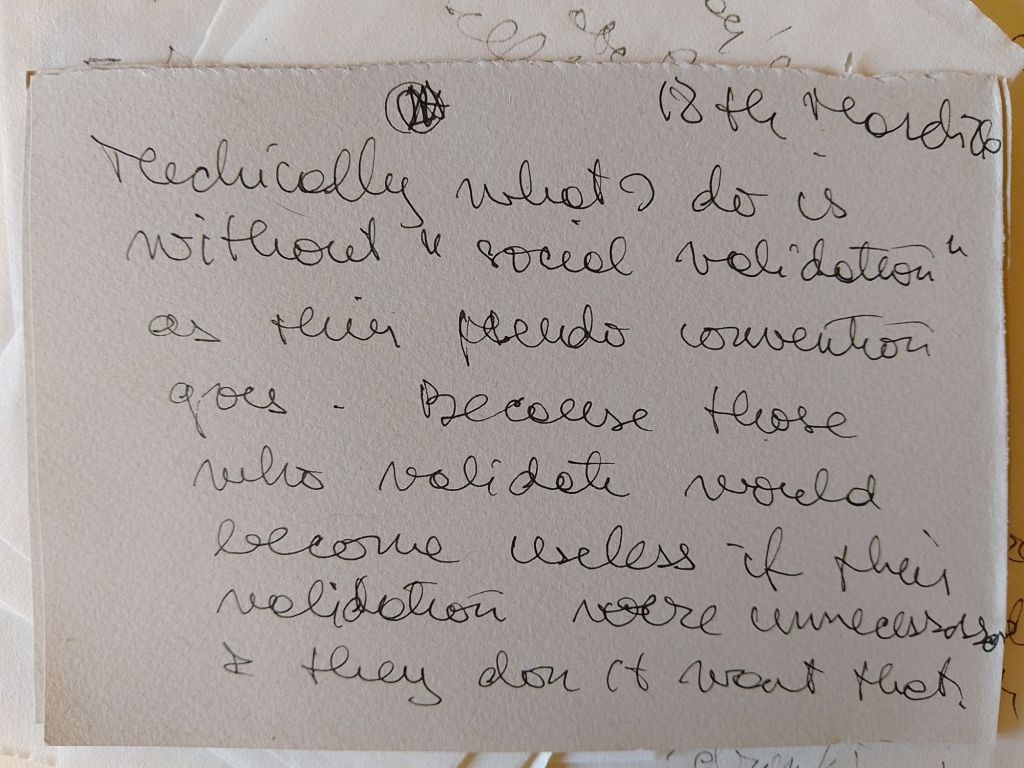 13th March 26
Technically what I do is
without "social validation"
as their pseudo convention
goes. Because those
who validate would
become useless if their
validation were unnecessary
& they don't want that.